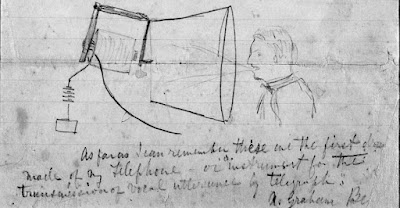 As far as I can remember these are the first
made of my telephone or "instrument for the
transmission of vocal utterance by telegraph.
A. Graham Be